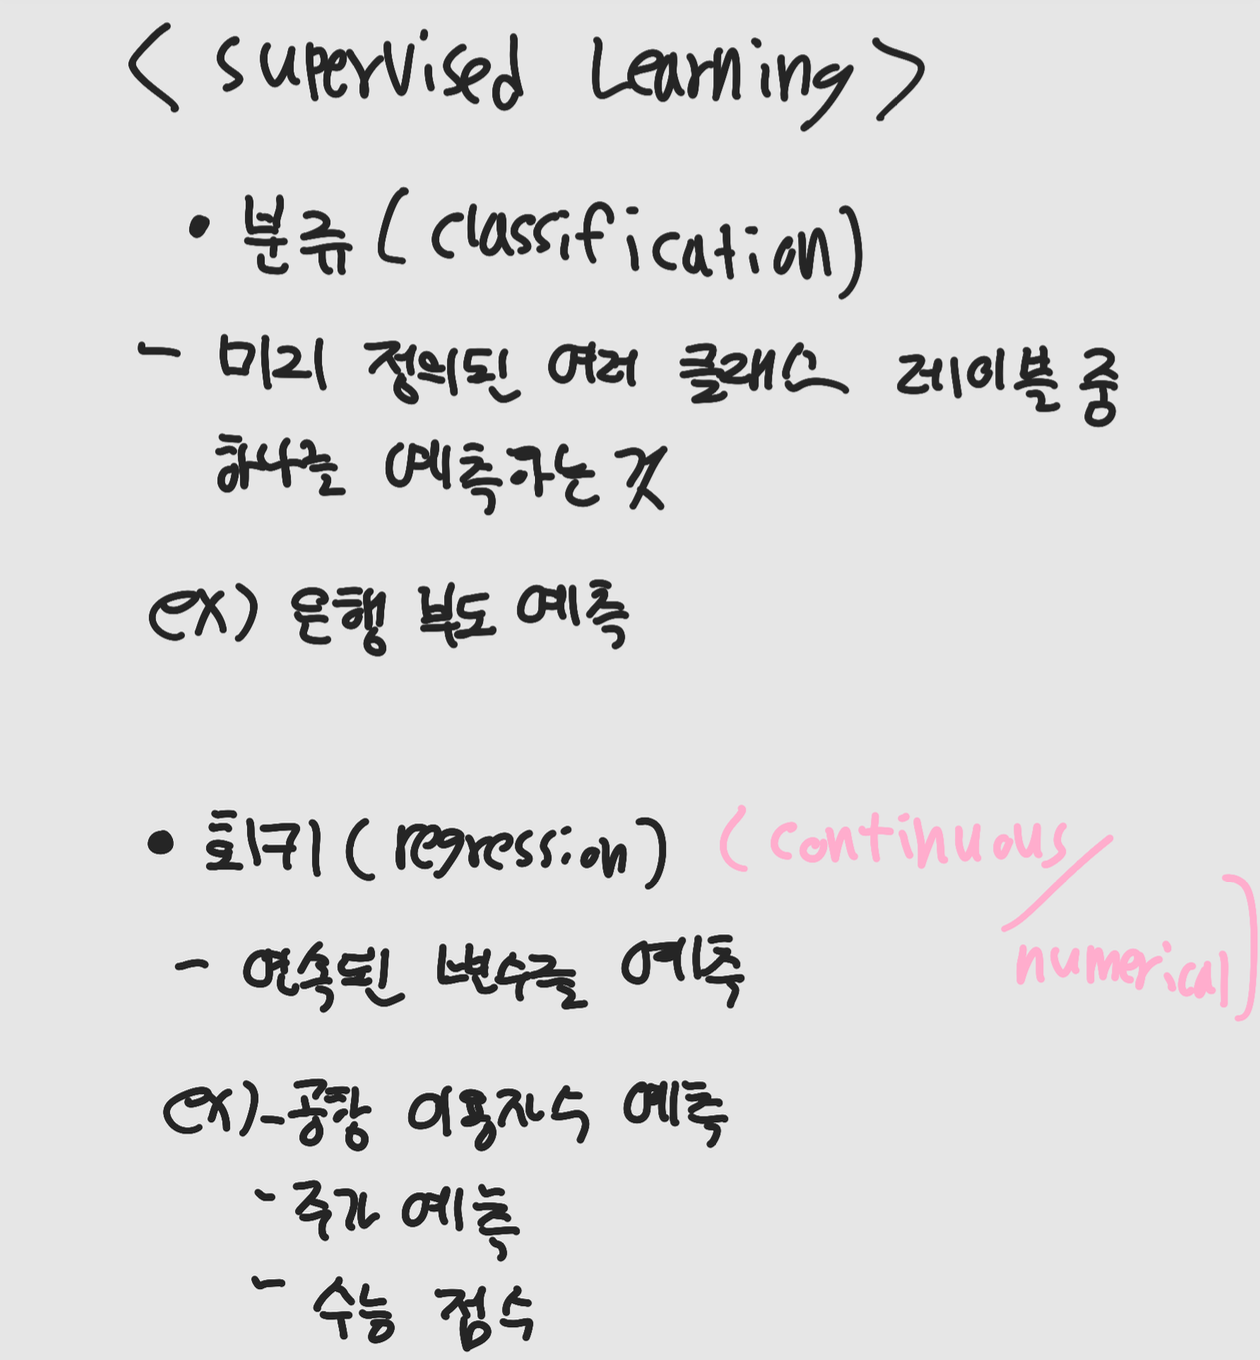 < supervised Learning >
• 분류 ( classification )
- 미리 정의된 여러 클래스 레이블 중
하나를 예측하는 것
ex) 은행 부도 예측
• 회귀 ( regression ) ( continuous /
numerical )
- 연속된 변수를 예측
ex) - 공항 이용자수 예측
- 주가 예측
- 수능 점수